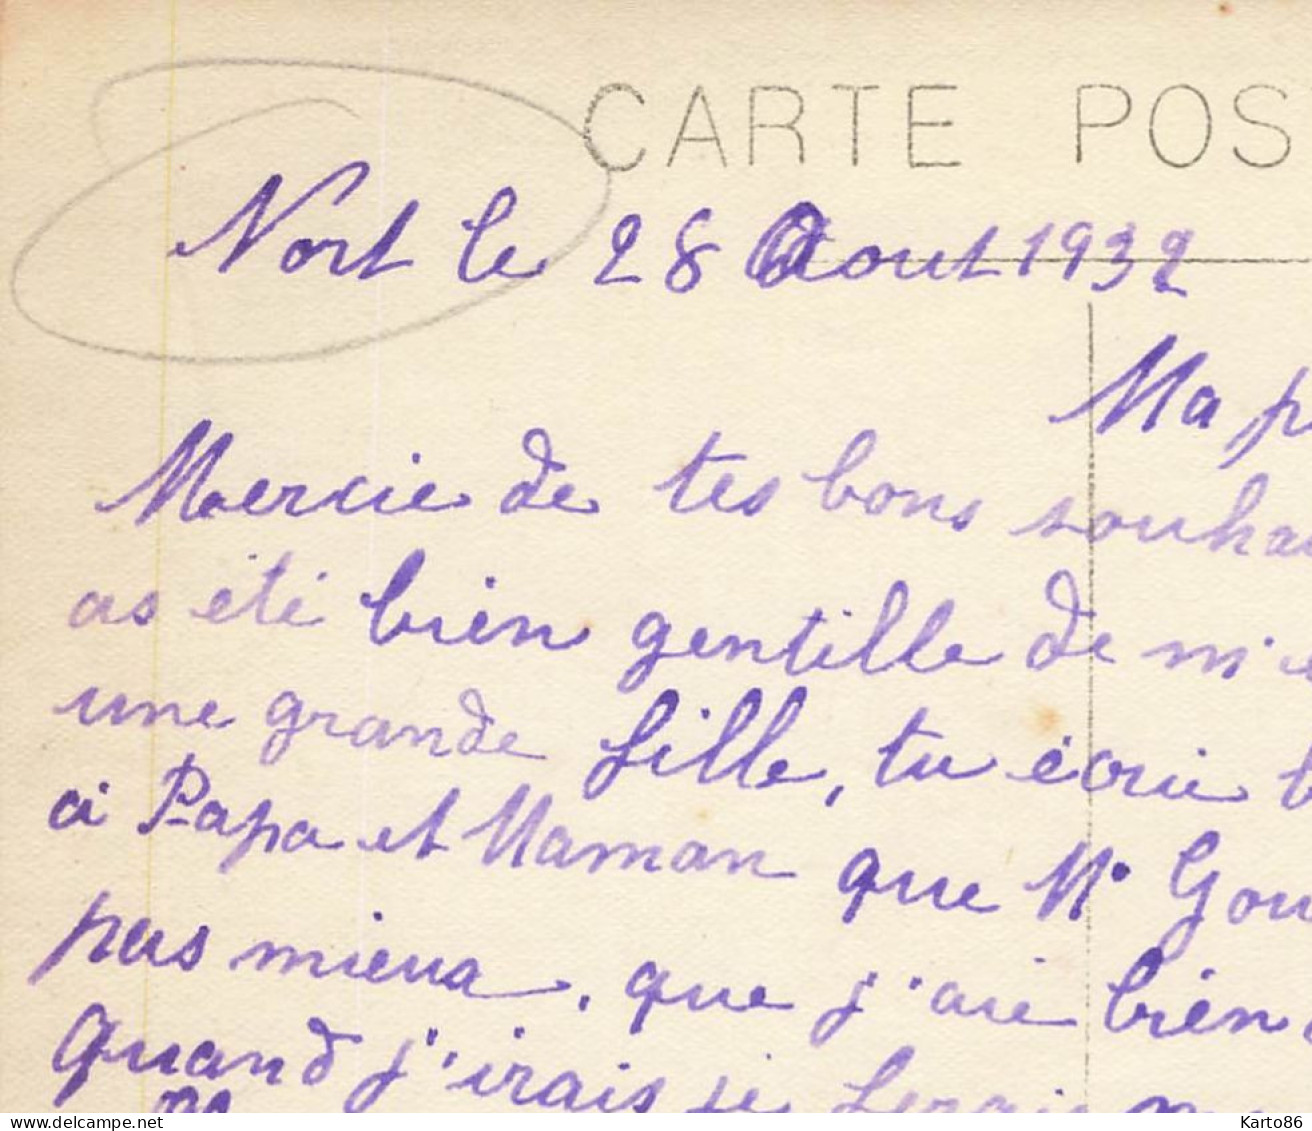 CARTE POS
Nort le 28 Aout 1932
Ma p
Mercie de tes bons souhai
as été bien gentille de m'é
une grande fille, tu écrie b
à Papa et Maman que Mr Gou
pas mieux, que j'aie bien
Quand j'irais je ferais
delcampe.net
Karto86